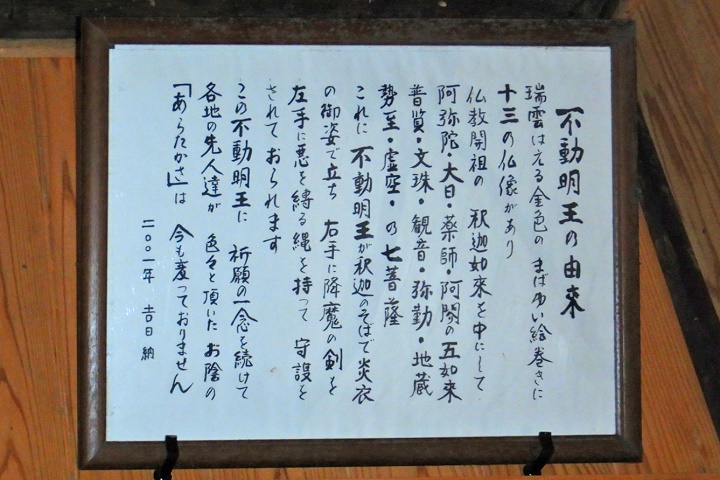 不動明王の由来
瑞雲はえる金色の まばゆい絵巻きに
十三の仏像があり
仏教開祖の 釈迦如来を中にして
阿弥陀・大日・薬師・阿閦の五如来
普賢・文珠・観音・弥勒・地蔵
勢至・虚空・の七菩薩
これに不動明王が釈迦のそばで炎衣
の御姿で立ち 右手に降魔の剣を
左手に悪を縛る縄を持って 守護を
されておられます
この不動明王に 祈願の一念を続けて
各地の先人達が 色々と頂いたお陰の
「あらたかさ」は 今も変っておりません
二〇〇一年 吉日 納